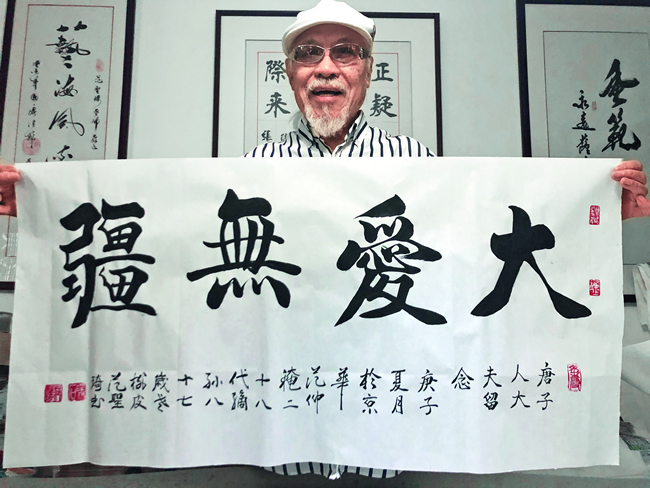 大愛無疆
唐子
人大
夫留
念
庚子
夏月
於京
華
范仲
淹二
十八
代嫡
孫八
十七
歲老
樹皮
范聖
琦書
藝海風
正疑
際來
永遠